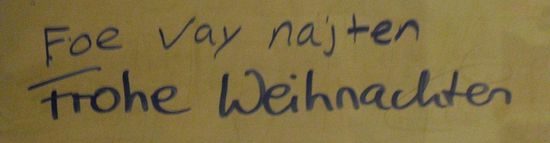 Foe Vay najten
Frohe Weihnachten